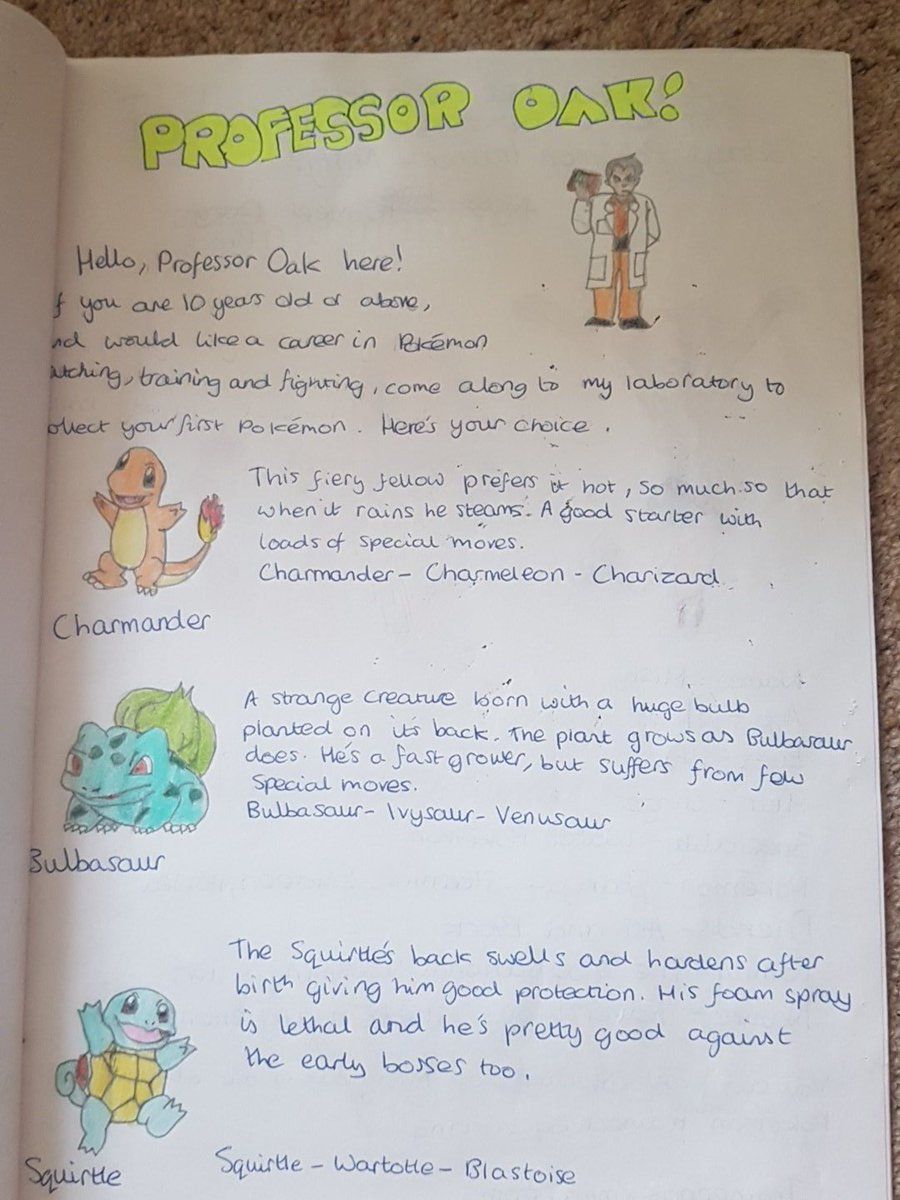 PROFESSOR OAK!
Hello, Professor Oak here!
f you are 10 years old or above,
nd would like a career in Pokémon
atching, training and fighting, come along to my laboratory to
ollect your first Pokémon. Here's your choice.
This fiery fellow prefers it hot, so much so that
when it rains he steams. A good starter with
loads of special moves.
Charmander - Charmeleon - Charizard
Charmander
A strange creature born with a huge bulb
planted on it's back. The plant grows as Bulbasaur
does. He's a fast grower, but suffers from few
special moves.
Bulbasaur - Ivysaur - Venusaur
Bulbasaur
The Squirtle's back swells and hardens after
birth giving him good protection. His foam spray
is lethal and he's pretty good against
the early bosses too.
Squirtle
Squirtle - Wartotle - Blastoise